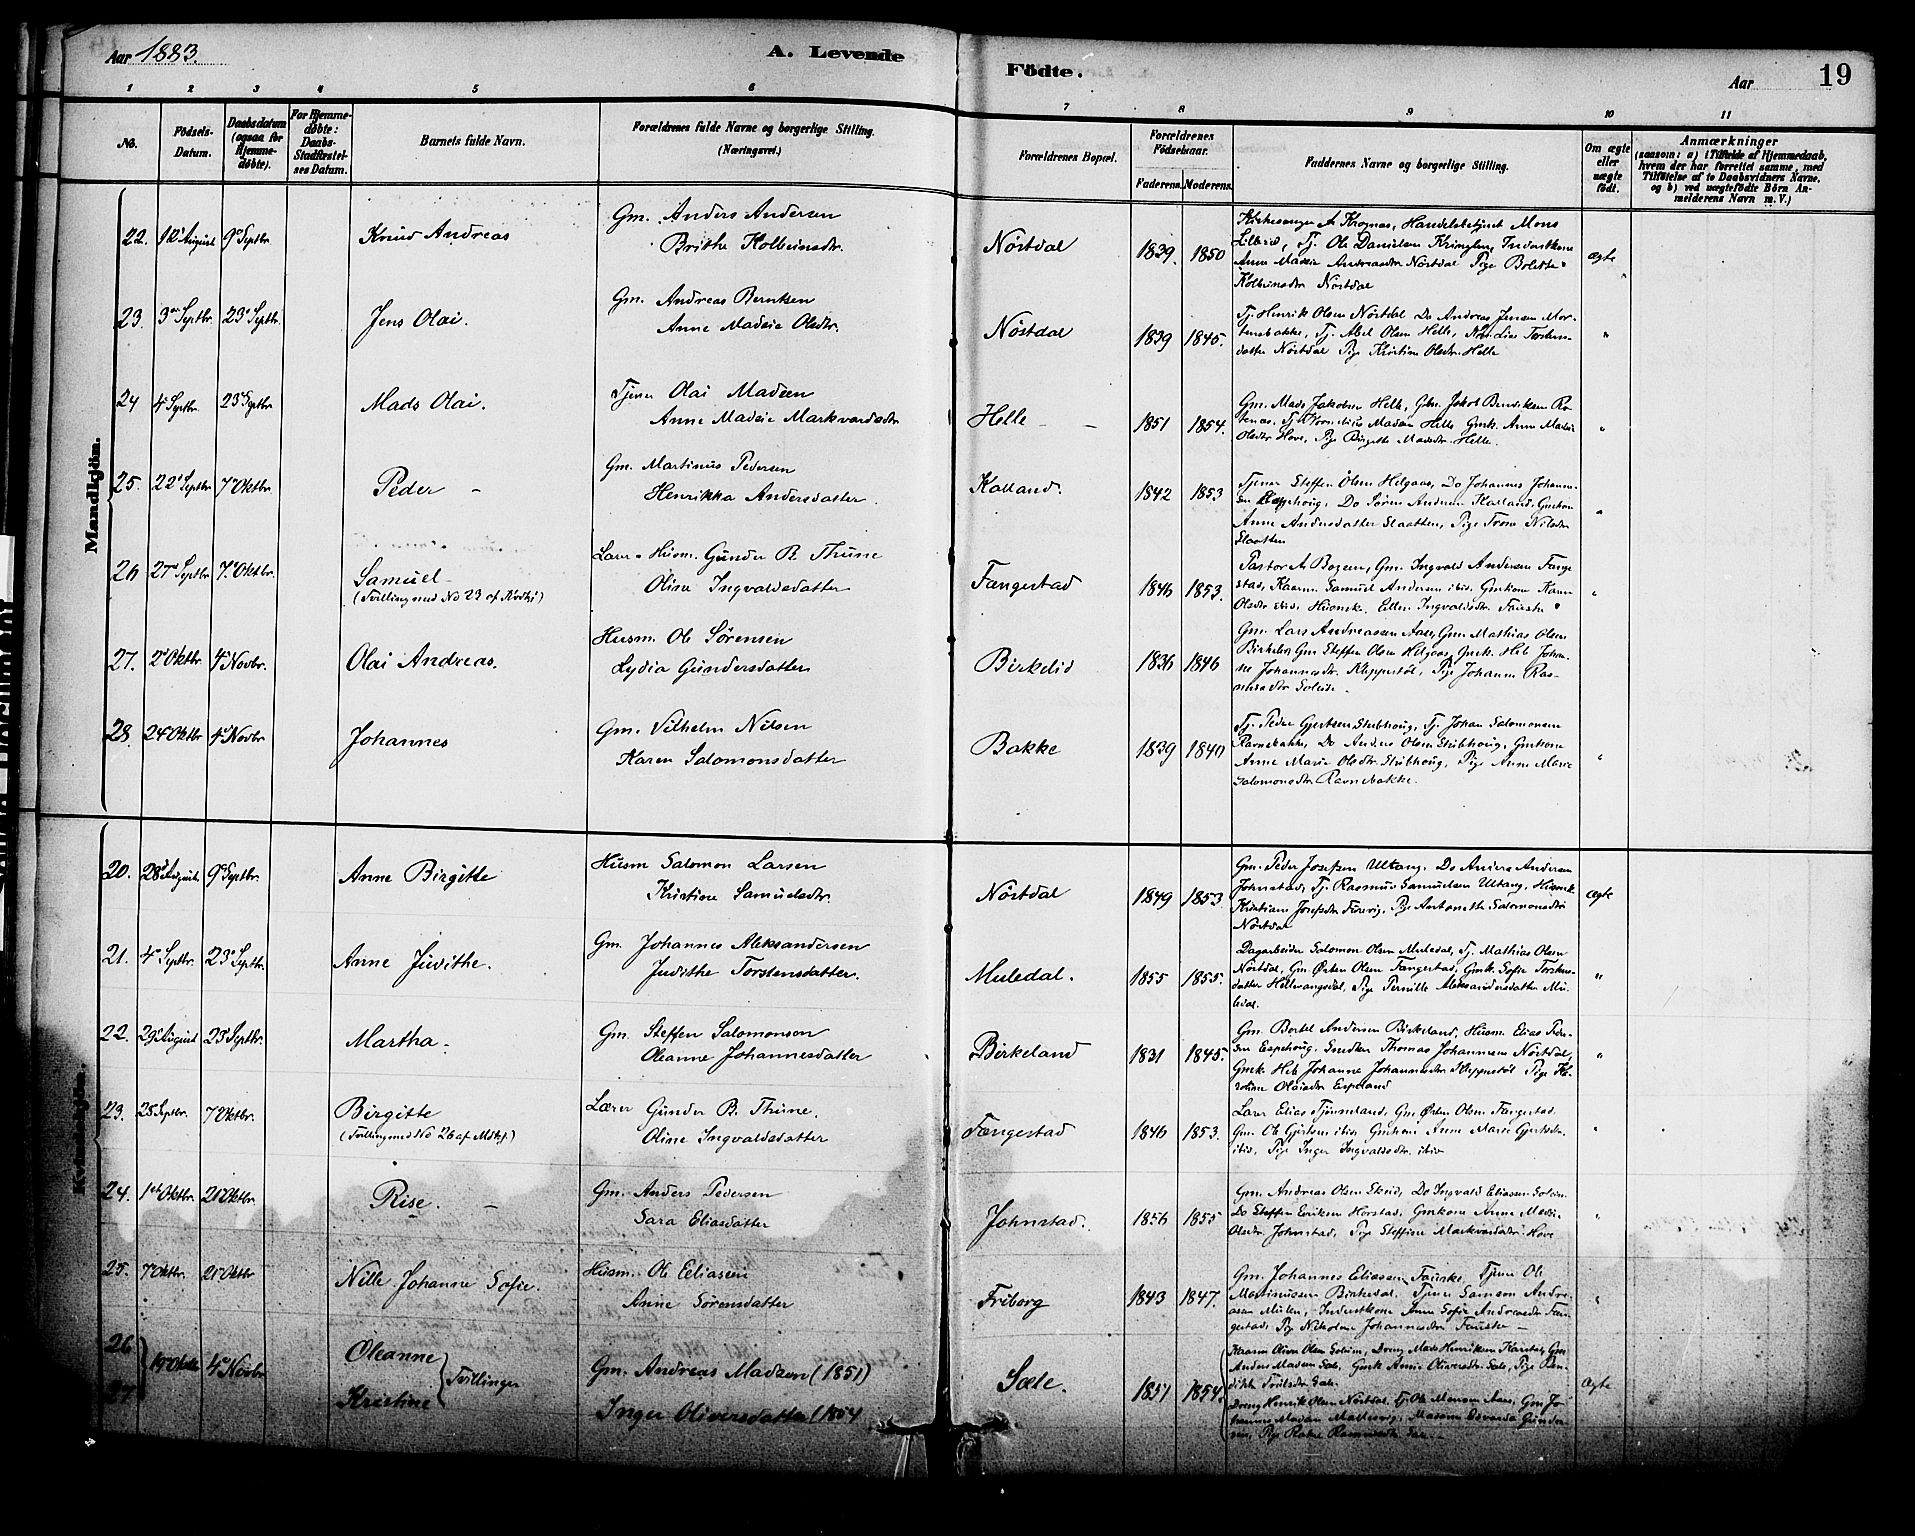 Aar 1883.
A. Levende Födte.
Aar
19
1 2 3 4 5 6 7 8 9 10 11
No.
Födsels-Datum.
Daabsdatum (ogsaa for Hjemmedöbte).
For Hjemmedöbte: Daabs-Stadfæstelses Datum.
Barnets fulde Navn.
Forældrenes fulde Navne og borgerlige Stilling. (Næringsvei.)
Forældrenes Bopæl.
Forældrenes Födselsaar.
Faderens. Moderens.
Faddernes Navne og borgerlige Stilling.
Om ægte eller uægte födt.
Anmærkninger
(saasom: a) i Tilfælde af Hjemmedaab, hvem der har forrettet samme, med Tilföielse af to Daabsvidners Navne, og b) ved uægtefödte Börn Anmelderens Navn m. V.)
Mandkjön.
22. 12 August 9 Septbr. Knud Andreas
Gm. Anders Andersen
Brithe Kolbeinsdtr.
Nöstdal 1839. 1850
Anne Madsie Andreasdtr Nöstdal Pige Bolette
Kolbeinsdtr Nöstdal
ægte
23. 3 Septbr. 23 Septbr. Jens Olai.
Gm. Andreas Berntsen
Anne Madsie Olsdtr.
Nöstdal 1839 1845.
Tj. Henrik Olsen Nöstdal Do Andreas Jensen Mor-
tensbakke, Tj. Abel Olsen Helle,
datter Nöstdal Pige Kristine Olsdtr. Helle
"
24 4 Septbr. 23 Septbr Mads Olai.
Tjener Olai Madsen
Anne Madsie Markvardsdtr
Helle 1851 1854.
Gm. Mads Jakobsen Helle,
Olsdtr Hove, Pige Birgitte Madsdtr. Helle.
"
25. 22 Septbr 7 Oktbr. Peder
Gm. Martinus Pedersen
Henrikka Andersdatter.
Kalland. 1842 1853
Tjener Steffen Olsen Helgaas, Do Johannes Johannes-
sen Espehoug, Do Sören Andersen Kalland. Gmkone
Anne Andersdatter Slaatten, Pige Nilsdtr
Slaatten
"
26 27 Septbr 7 Oktbr. Samuel
(Tvilling med No 23 af Kvdkj)
Lærer Husm. Gunder B. Thune
Oline Ingvaldsdatter
Fængestad 1846 1853.
Pastor Gm. Ingvald Andersen Fænge-
stad, Samuel Andersen ibid. Gmkone Karen
Olsdtr ibid, Ellen Ingvaldsdtr.
"
27. 2 Oktbr 4 Novbr. Olai Andreas.
Husm. Ole Sörensen
Lydia Gundersdatter
Birkelid 1836 1846
Gm. Lars Andreassen Aase, Gm. Mathias Olsen
Birkeland Gm Steffen Olsen Helgaas, Gmk. Heb. Johan-
ne Johannesdtr. Kleppestöl, Pige Johanne Ras-
musdtr
28. 24 Oktbr 4 Novbr. Johannes
Gm. Vilhelm Nilsen
Karen Salomonsdatter
Bakke 1839 1840
Tj. Peder Gjertsen Stubhoug, Tj. Johan Salomonsen
Ravnebakke, Do Anders Olsen Stubhoug, Gmkone
Anne Marie Olsdtr. Stubhoug, Pige Anne Marie
Salomonsdtr Ravnebakke.
"
Kvindekjön.
20. 28 August. 9 Septbr. Anne Birgitte
Husm Salomon Larsen
Kristine Samuelsdtr.
Nöstdal 1849 1853
Gm. Peder Josefsen Utang, Do Anders Andersen
Johnstad, Tj. Rasmus Samuelsen Utang,
Kristiane Josefsdtr Pige Antonette Salomonsdtr
Nöstdal
Ægte
21. 4 Septbr. 23 Septbr. Anne Judithe.
Gm. Johannes Aleksandersen
Judithe Torstensdatter.
Muledal. 1855 1855.
Dagarbeider Salomon Olsen Muledal, Tj. Mathias Olsen
Nöstdal, Gm Østen Olsen Fængestad, Gmk. Sofie Torstens-
datter Pige Pernille Aleksandersdatter Mu-
ledal.
"
22. 29 August 23 Septbr. Martha
Gm. Steffen Salomonson
Oleanne Johannesdatter
Birkeland 1831 1845.
Gm. Bertel Andersen Birkeland, Husm. Elias Peder-
sen Espehoug, Snedker Thomas Johannesen Nöstdal,
Gmk. Heb. Johanne Johannesdtr Kleppestöl Pige
Olaisdtr Espeland
"
23. 28 Septbr. 7 Oktbr. Birgitte
(Tvilling med No 26 af Mdkj.)
Lærer Gunder B. Thune.
Oline Ingvaldsdatter
Fængestad 1846 1853.
Lærer Elias Gm. Østen Olsen Fængestad.
Gm. Ole Gjertsen ibid, Gmkone Anne Marie Gjertsdtr.
ibid, Pige Inger Ingvaldsdtr. ibid
"
24. 1 Oktbr. 21 Oktbr. Rise.
Gm. Anders Pedersen
Sara Eliasdatter
Johnstad. 1856 1855
Gm. Andreas Olsen Do Ingvald Eliasen
Do Steffen Eriksen Gmkone Anne Madsie
Olsdtr. Johnstad, Pige Steffine Markvardsdtr Hove
"
25. 7 Oktbr. 21 Oktbr Nille Johanne Sofie.
Husm. Ole Eeliasen
Anne Sörensdatter
Friborg 1843 1847.
Gm. Johannes Eliasen Tjener Ole
Martinussen Birkedal. Tjener Samson Andre-
asen Mulen, Inderstkone Anne Sofie Andreasdtr Fæn-
gestad, Pige Nikoline Johannesdtr
"
26 27 4 Novbr Oleanne Kristine Tvillinger
Gm. Andreas Madsen (1851)
Inger Oliversdatter (1854
Sæle. 1851 1854.
Oliver Olsen Dreng Mads Henriksen Gm
Anders Madsen Sæle, Gmk Anne Oliversdtr Sæle, Pige
Dreng Henrik Olsen Nöstdal, Tj. Ole Gm Jo-
hannes Madsen
Ægte